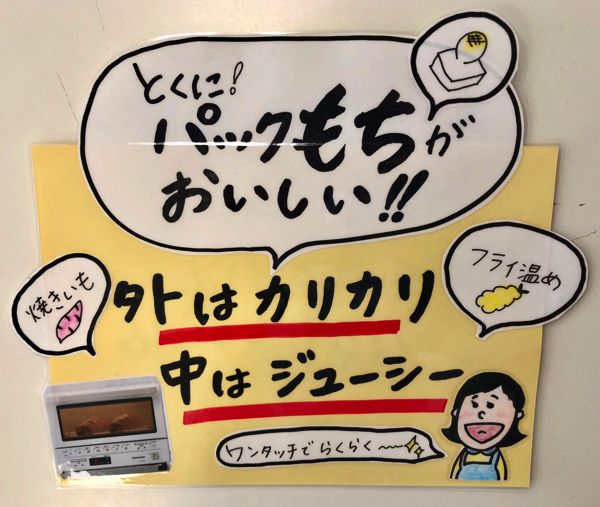 とくに!
パックもちが
おいしい!!
焼きいも
フライ温め
外はカリカリ
中はジューシー
ワンタッチでらくらく〜
Panasonic